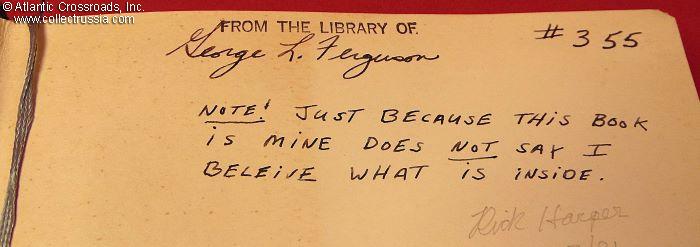 © Atlantic Crossroads, Inc.
www.collectrussia.com
FROM THE LIBRARY OF
George L. Ferguson
#355
NOTE! JUST BECAUSE THIS BOOK
IS MINE DOES NOT SAY I
BELEIVE WHAT IS INSIDE.
Rick Harper